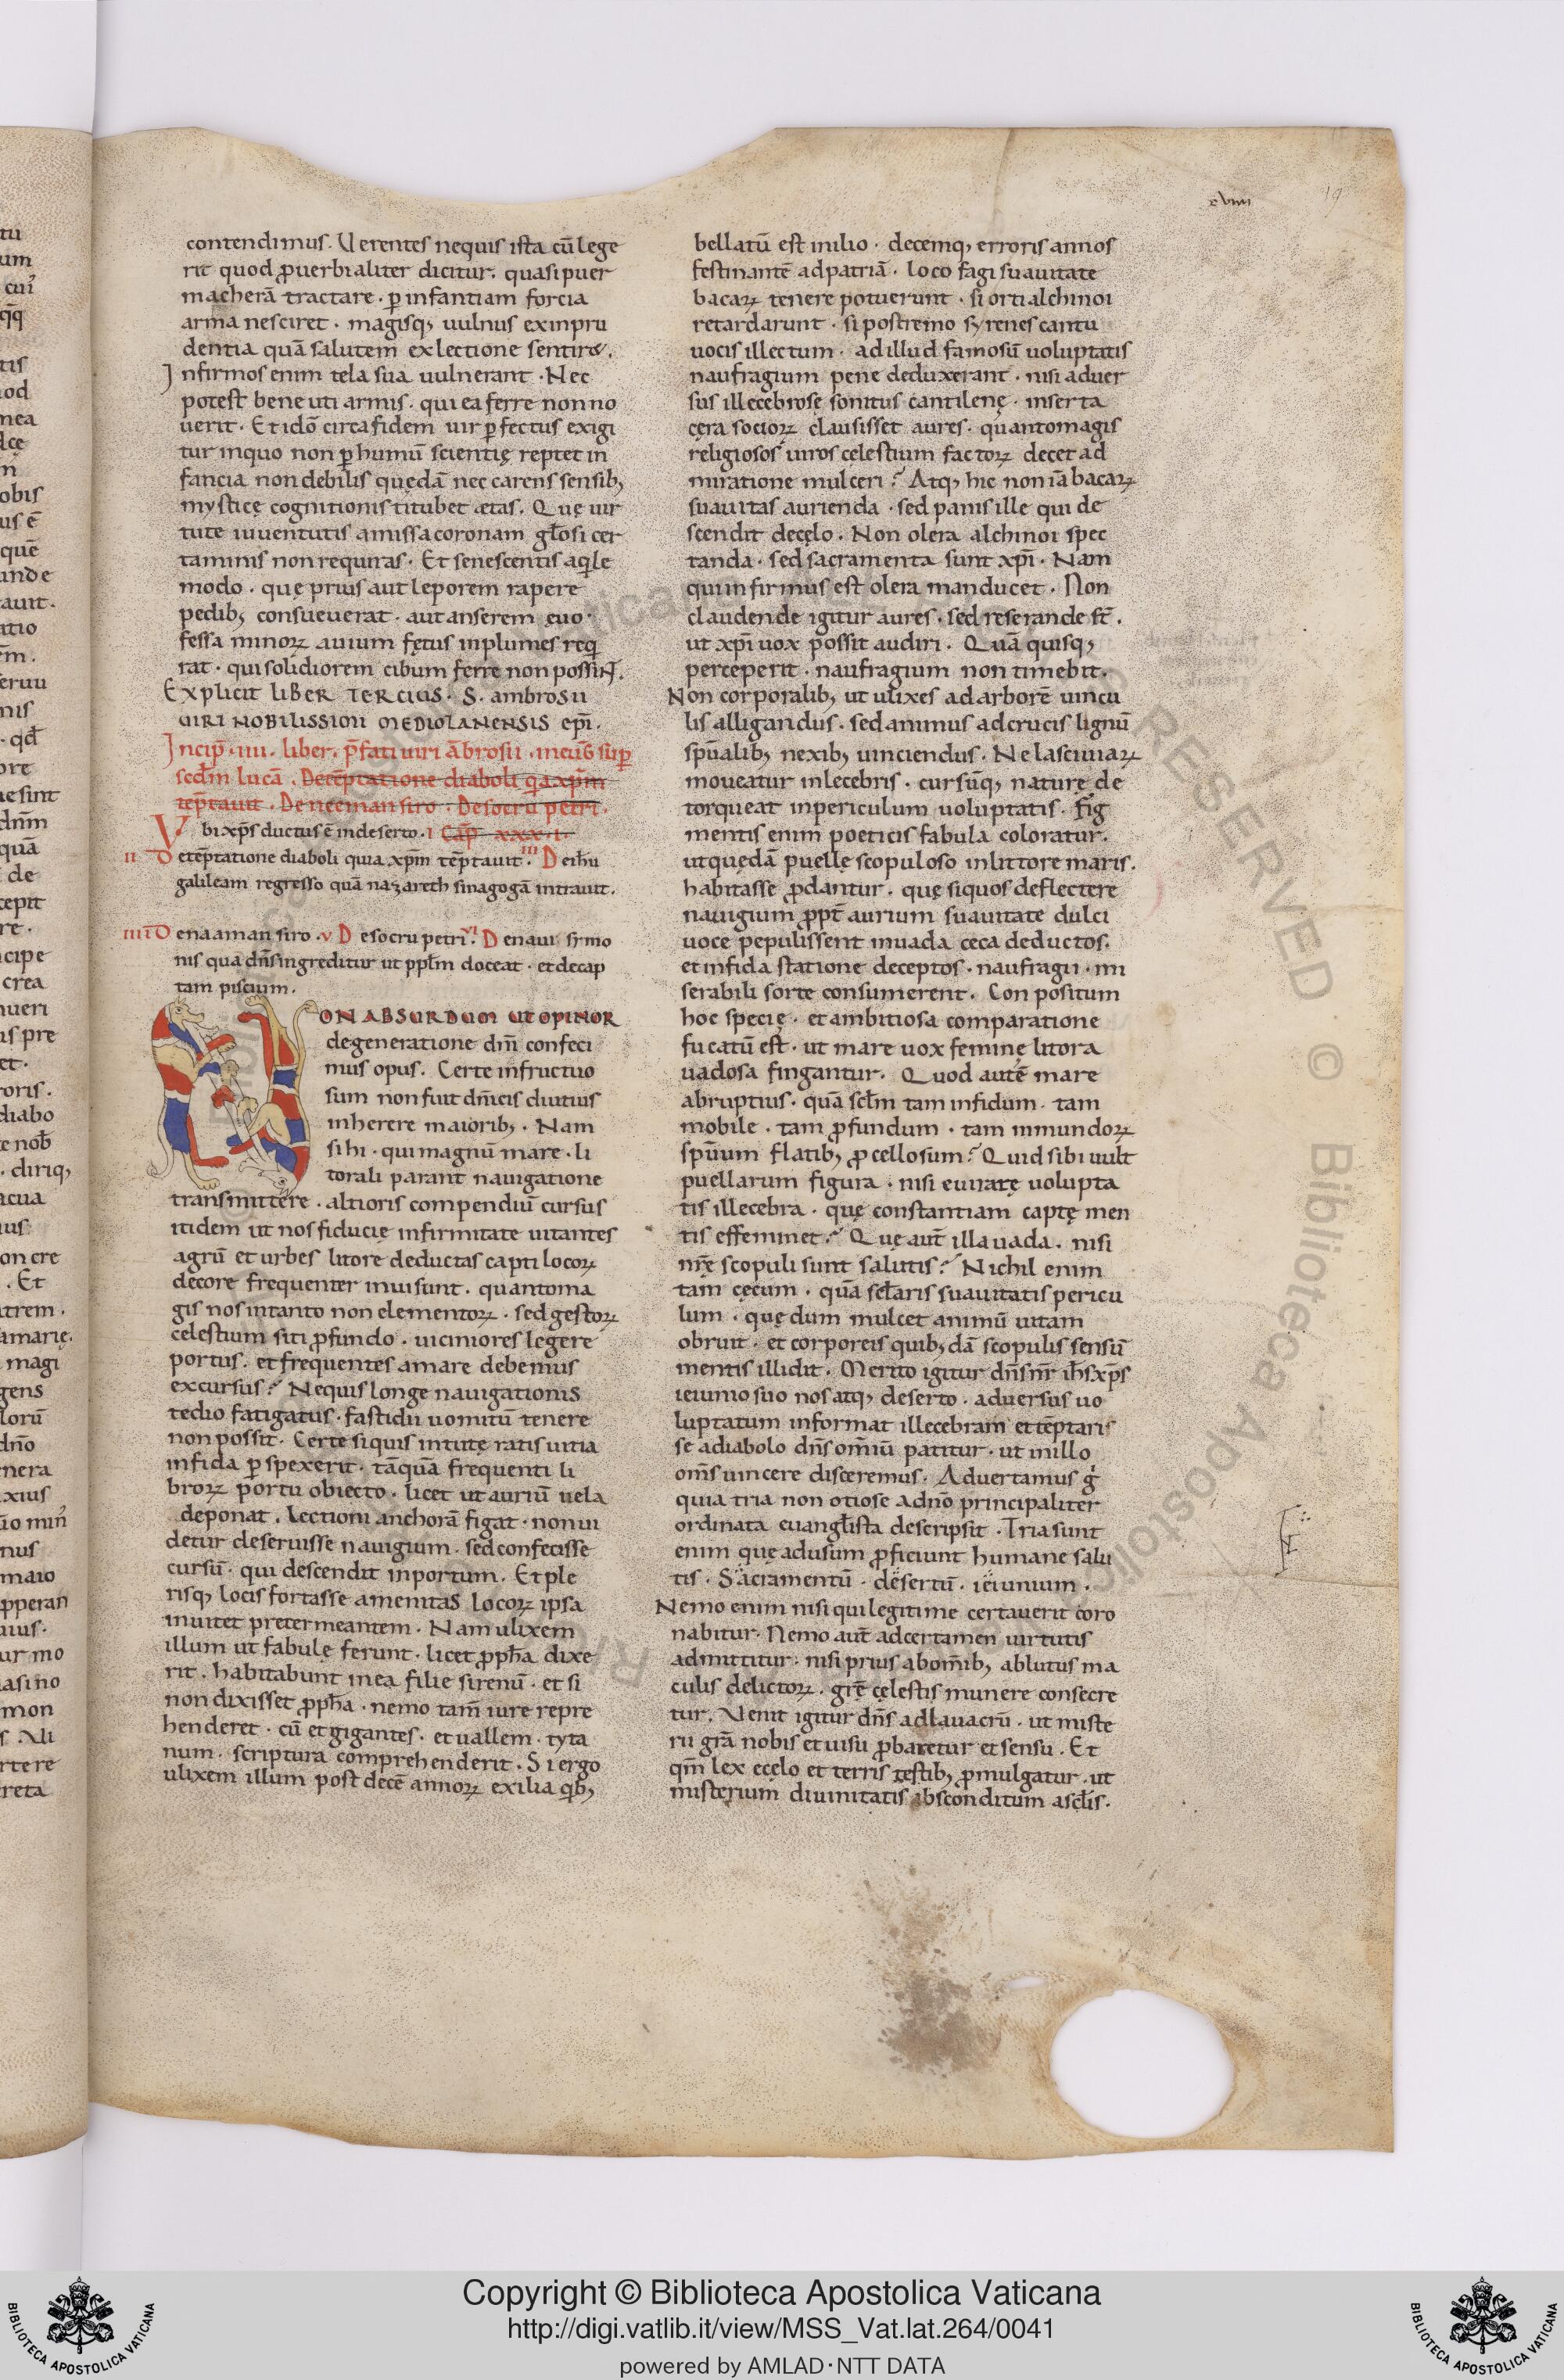 xviiii
19
contendimus. Uerentes nequis ista cū lege
rit quod ꝓuerbialiter dicitur. quasi puer
macherā tractare. ꝑ infantiam forcia
arma nesciret. magisq; uulnus ex inpru
dentia quā salutem ex lectione sentiret.
Infirmos enim tela sua uulnerant. Nec
potest bene uti armis. qui ea ferre non no
uerit. Et idō circa fidem uir ꝑfectus exigi
tur in quo non ꝑ humū scientię reptet in
fancia non debilis quędā nec carens sensib;
mysticę cognitionis titubet ætas. Quę uir
tute iuuentutis amissa coronam gl̄osi cer
taminis non requiras. Et senescentis aq̄le
modo. quę prius aut leporem rapere
pedib; consueuerat. aut anserem. euo
fessa minoꝝ auium fętus inplumes req̄
rat. qui solidiorem cibum ferre non possiɴᴛ.
Explicit liBER TERCIUS. S. ambrosii
UIRI NOBILISSIMI MEDIOLANENSIS epī.
Incip̄. iiii. liber. p̄fati uiri āBrosii. incuƀ sup̄
scd̄m lucā. De tēptatione diaboli q̄a xp̄m
tēptauit. De neeman siro. De socru petri.
Vbi xp̄s ductus ē in deserto. i Cap̄ xxx.i.
ii De tēptatione diaboli quia xp̄m tēptauit. iii De ih̄u
galileam regresso quā nazareth sinagogā intrauit.
iiii De naaman siro. v De socru petri. vi De naui simo
nis quā dn̄s ingreditur ut ppl̄m doceat. et de cap
tam piscium.
NON ABSURDUM UT OPINOR
de generatione dn̄i confeci
mus opus. Certe infructuo
sum non fuit dn̄icis diutius
inherere maiorib;. Nam
si hi. qui magnū mare. li
torali parant nauigatione
transmittere. altioris compendiū cursus
itidem ut nos fiducię infirmitate uitantes
agrū et urbes litore deductas capti locoꝝ
decore frequenter inuisunt. quantoma
gis nos in tanto non elementoꝝ. sed gestoꝝ
celestium siti ꝓfundo. uiciniores legere
portus. et frequentes amare debemus
excursus? Nequis longe nauigationis
tedio fatigatus. fastidii uomitū tenere
non possit. Certe siquis intutę ratis uitia
infida ꝑspexerit. tāquā frequenti li
broꝝ portu obiecto. licet ut auriū uela
deponat. Lectioni anchorā figat. non ui
detur deseruisse nauigium. sed confecisse
cursū. qui descendit in portum. Et ple
risq; locis fortasse amenitas locoꝝ ipsa
inuitet pretermeantem. Nam ulixem
illum ut fabulę ferunt. licet ꝓph̄a dixe
rit. habitabunt in ea filie sirenū. et si
non dixisset ꝓph̄a. nemo tam̄ iure repre
henderet. cū et gigantes. et uallem. tyta
num. scriptura comprehenderit. Si ergo
ulixem illum post decē annoꝝ exilia qb;
bellatū est in ilio. decemq; erroris annos
festinantē ad patriā. loco fagi suauitate
bacaꝝ tenere potuerunt. si orti alchinoi
retardarunt. si postremo syrenes cantu
uocis illectum. ad illud famosū uoluptatis
naufragium pene deduxerant. nisi aduer
sus illecebrose sonitus cantilenę. inserta
cęra socioꝝ clausisset aures. quantomagis
religiosos uiros celestium factoꝝ decet ad
miratione mulceri? Atq; hic non iā bacaꝝ
suauitas aurienda. sed panis ille qui de
scendit de cęlo. Non olera alchinoi spec
tanda. sed sacramenta sunt xp̄i. Nam
qui infirmus est olera manducet. Non
claudende igitur aures. sed reserande st̄.
ut xp̄i uox possit audiri. Quā quisq;
perceperit. naufragium non timebit.
Non corporalib; ut ulixes ad arborē uincu
lis alligandus. sed animus ad crucis lignū
spūalib; nexib; uinciendus. Ne lasciuiaꝝ
moueatur inlecebris. cursūq; naturę de
torqueat in periculum uoluptatis. Fig
mentis enim poeticis fabula coloratur.
ut quędā puellę scopuloso in littore maris.
habitasse ꝓdantur. quę siquos deflectere
nauigium ꝓpt̄ aurium suauitate dulci
uoce pepulissent in uada ceca deductos.
et infida statione deceptos. naufragii. mi
serabili sorte consumerent. Con positum
hoc specię. et ambitiosa comparatione
fucatū est. ut mare uox feminę litora
uadosa fingantur. Quod autē mare
abruptius. quā scl̄m tam infidum. tam
mobile. tam ꝓfundum. tam inmundoꝝ
spūum flatib; ꝓcellosum? Quid sibi uult
puellarum figura. nisi euiratę uolupta
tis illecebra. quę constantiam captę men
tis effeminet? Quę aut̄ illa uada. nisi
nr̄ę scopuli sunt salutis? Nichil enim
tam cęcum. quā scl̄aris suauitatis pericu
lum. quę dum mulcet animū uitam
obruit. et corporeis quib;dā scopulis sensū
mentis illidit. Merito igitur dn̄s nr̄ ih̄s xp̄s
ieiunio suo nos atq; deserto. aduersus uo
luptatum informat illecebram et tēptaris
se a diabolo dn̄s omīū patitur. ut in illo
om̄s uincere disceremus. Aduertamus g̊
quia tria non otiose a dn̄o principaliter
ordinata euangl̄ista descripsit. Tria sunt
enim quę ad usum ꝓficiunt humane salu
tis. Sacramentū. desertū. ieiunium.
Nemo enim nisi qui legitime certauerit coro
nabitur. Nemo aut̄ ad certamen uirtutis
admittitur. nisi prius ab om̄ib; ablutus ma
culis delictoꝝ. gr̄ę cęlestis munere consecre
tur. Venit igitur dn̄s ad lauacrū. ut miste
rii gr̄a nobis et uisu ꝓbaretur et sensu. Et
qm̄ lex e cęlo et terris testib; ꝓmulgatur. ut
misterium diuinitatis absconditum a scl̄is.
Copyright © Biblioteca Apostolica Vaticana
http://digi.vatlib.it/view/MSS_Vat.lat.264/0041
powered by AMLAD·NTT DATA
BIBLIOTECA APOSTOLICA VATICANA
BIBLIOTECA APOSTOLICA VATICANA